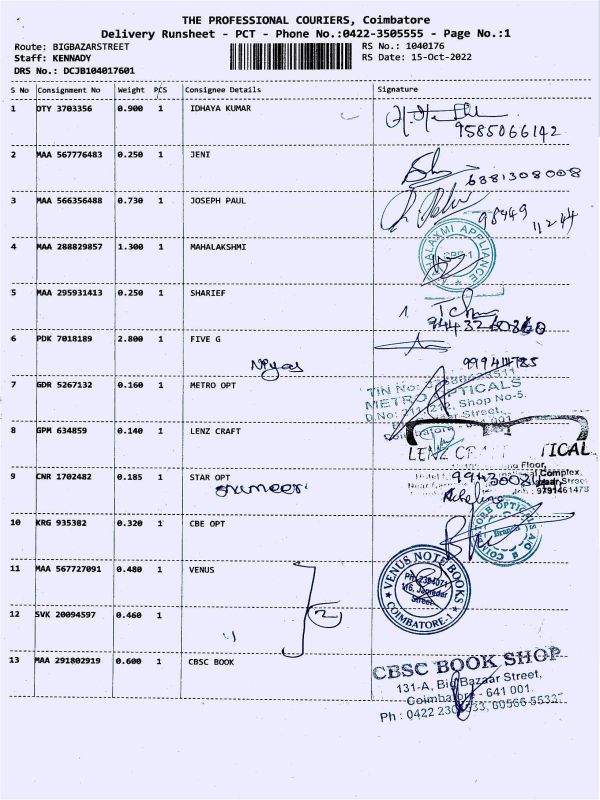 THE PROFESSIONAL COURIERS, Coimbatore
Delivery Runsheet - PCT - Phone No.:0422-3505555 - Page No.:1
Route: BIGBAZARSTREET
RS No.: 1040176
Staff: KENNADY
RS Date: 15-Oct-2022
DRS No.: DCJB104017601
S No Consignment No Weight PCS Consignee Details Signature
1 OTY 3703356 0.900 1 IDHAYA KUMAR
9585066142
2 MAA 567776483 0.250 1 JENI
6381308008
3 MAA 566356488 0.730 1 JOSEPH PAUL
98449
11244
4 MAA 288829857 1.300 1 MAHALAKSHMI
APPLIANCE
5 MAA 295931413 0.250 1 SHARIEF
6 PDK 7018189 2.800 1 FIVE G
Niyas
7 GDR 5267132 0.160 1 METRO OPT
TIN No:
METRO OPTICALS
D.No: 211, 212, Shop No-5.
8 GPM 634859 0.140 1 LENZ CRAFT
LENZ CR TICAL
Floor,
Complex,
9 CNR 1702482 0.185 1 STAR OPT
9791461478
10 KRG 935382 0.320 1 CBE OPT
11 MAA 567727091 0.480 1 VENUS
VENUS NOTE BOOKS
PH: 2394071
116, Jamedar
Street
COIMBATORE-1
12 SVK 20094597 0.460 1
13 MAA 291802919 0.600 1 CBSC BOOK
CBSC BOOK SHOP
131-A, Big Bazaar Street,
Coimbatore - 641 001.
Ph : 0422